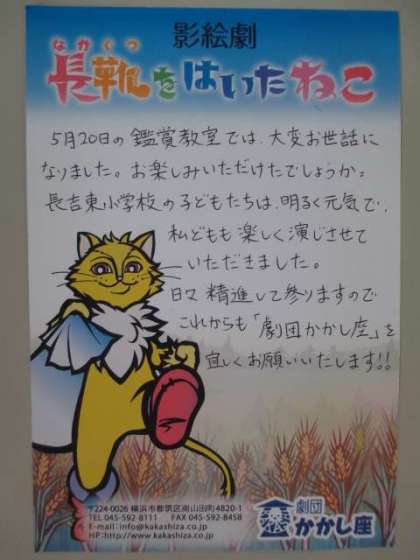 影絵劇
ながぐつ
長靴をはいたねこ
5月20日の鑑賞教室では、大変お世話に
なりました。お楽しみいただけたでしょうか。
長吉東小学校の子どもたちは、明るく元気で、
私どもも楽しく演じさせて
いただきました。
日々精進して参りますので
これからも「劇団かかし座」を
宜しくお願いいたします!!
〒224-0026 横浜市都筑区南山田町4820-1
TEL 045-592-8111 FAX 045-592-8458
E-mail: info@kakashiza.co.jp
HP: http://www.kakashiza.co.jp
劇団
かかし座